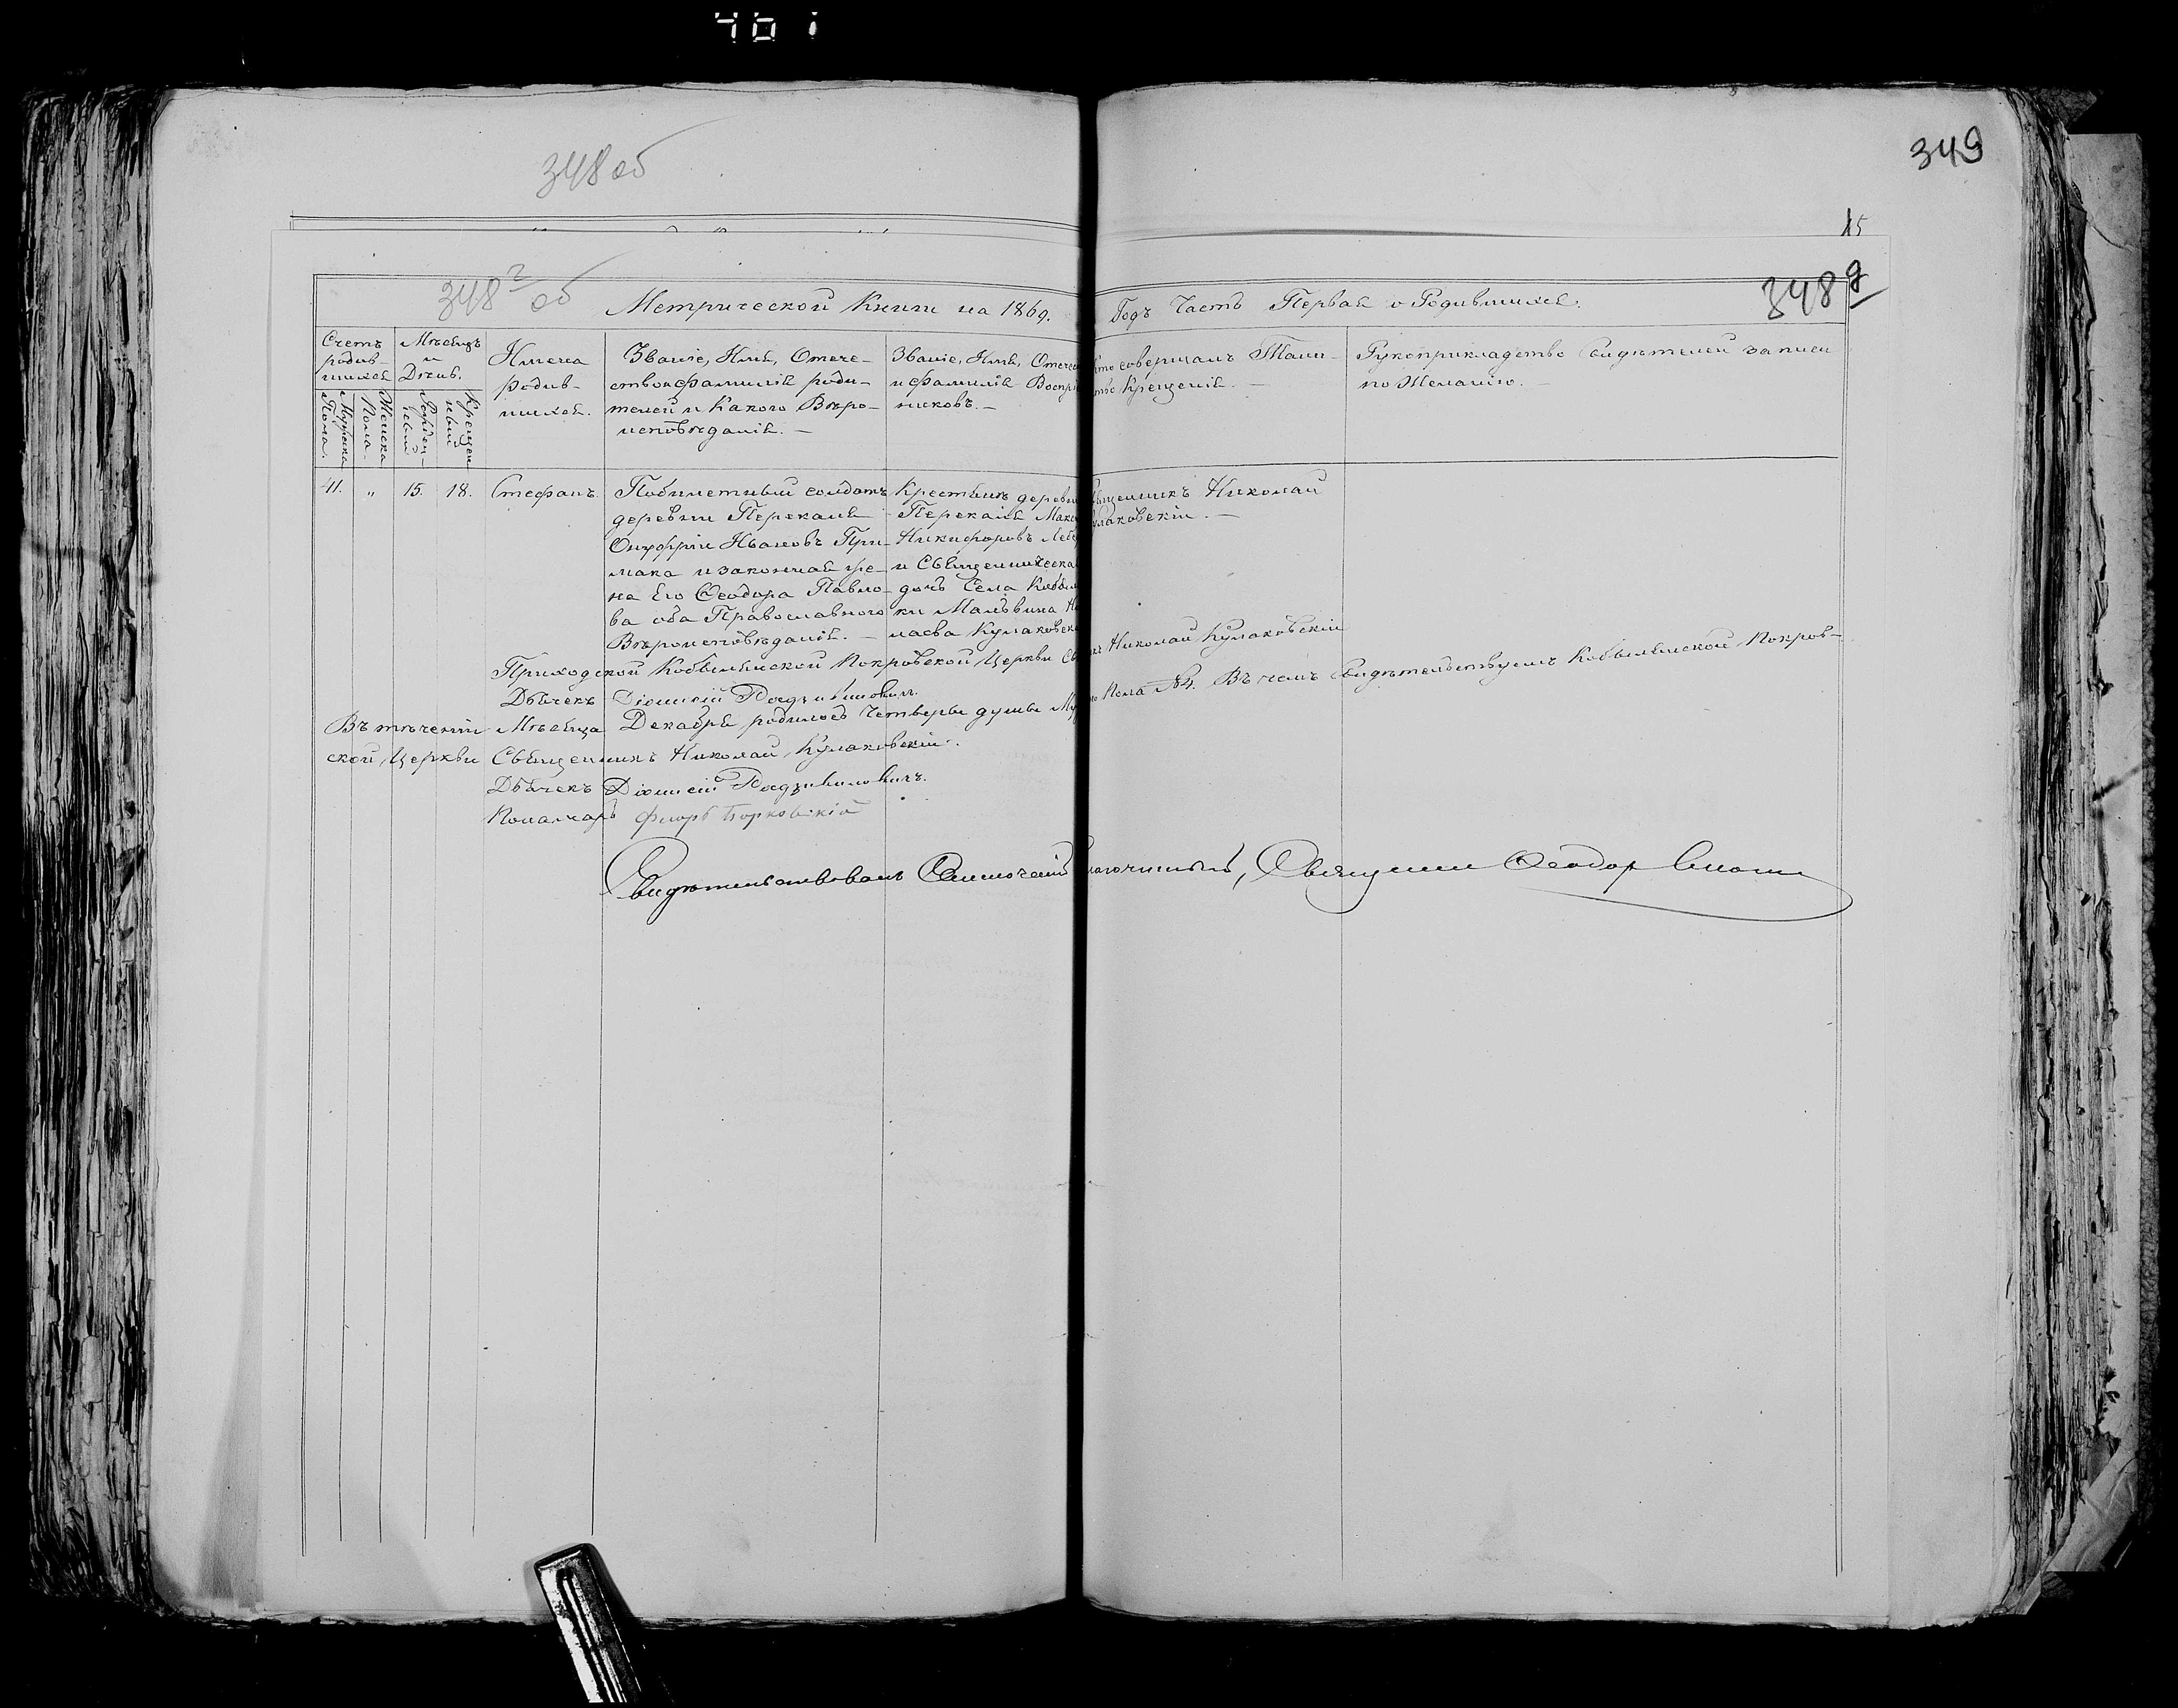 401
348 об
349
15
348 г об
348 д
Метрической Книги на 1869. Годъ Часть Первая о Родившихся.
Счетъ
родив-
шихся
Мужеска
Пола.
Женска
Пола.
Мѣсяцъ
и
День.
Рожде-
ній
Креще
ній
Имена
родив-
шихся.
Званіе, Имя, Отече-
ство и фамилія роди-
телей и Какого Вѣро-
исповѣданія. —
Званіе, Имя, Отечес
и фамилія Воспрі
никовъ. —
Кто совершалъ Таин-
ство Крещенія. —
Рукоприкладство Свидѣтелей записи
по Желанію. —
41. „ 15. 18. Стефанъ.
Побилетный солдатъ
деревни Перекаля
Онуфрій Ивановъ При-
мака и законная же-
на Его Ѳеодора Павло-
ва оба Православного
Вѣроисповѣданія. —
Крестьянъ деревн
Перекаля Мак
Никифоровъ Леб
и Священническа
дочь Села Кобыл
ки Мальвина Н
лаева Куликовск
Священникъ Николай
Кулаковскій. —
Приходской Кобылянской Покровской Церкви Св къ Николай Кулаковскій
Дьячекъ Діонисій Роздзиловичъ.
Въ теченіи Мѣсяца Декабря родилось Четверы душы Му Пола №4. Въ чемъ Свидѣтельствуемъ Кобылянской Покров-
ской Церкви Священникъ Николай Кулаковскій.
Дьячекъ Діонисій
Пономарь Флоръ Борковскій
Свидѣтельствовалъ Благочинный, Священникъ Ѳеодор